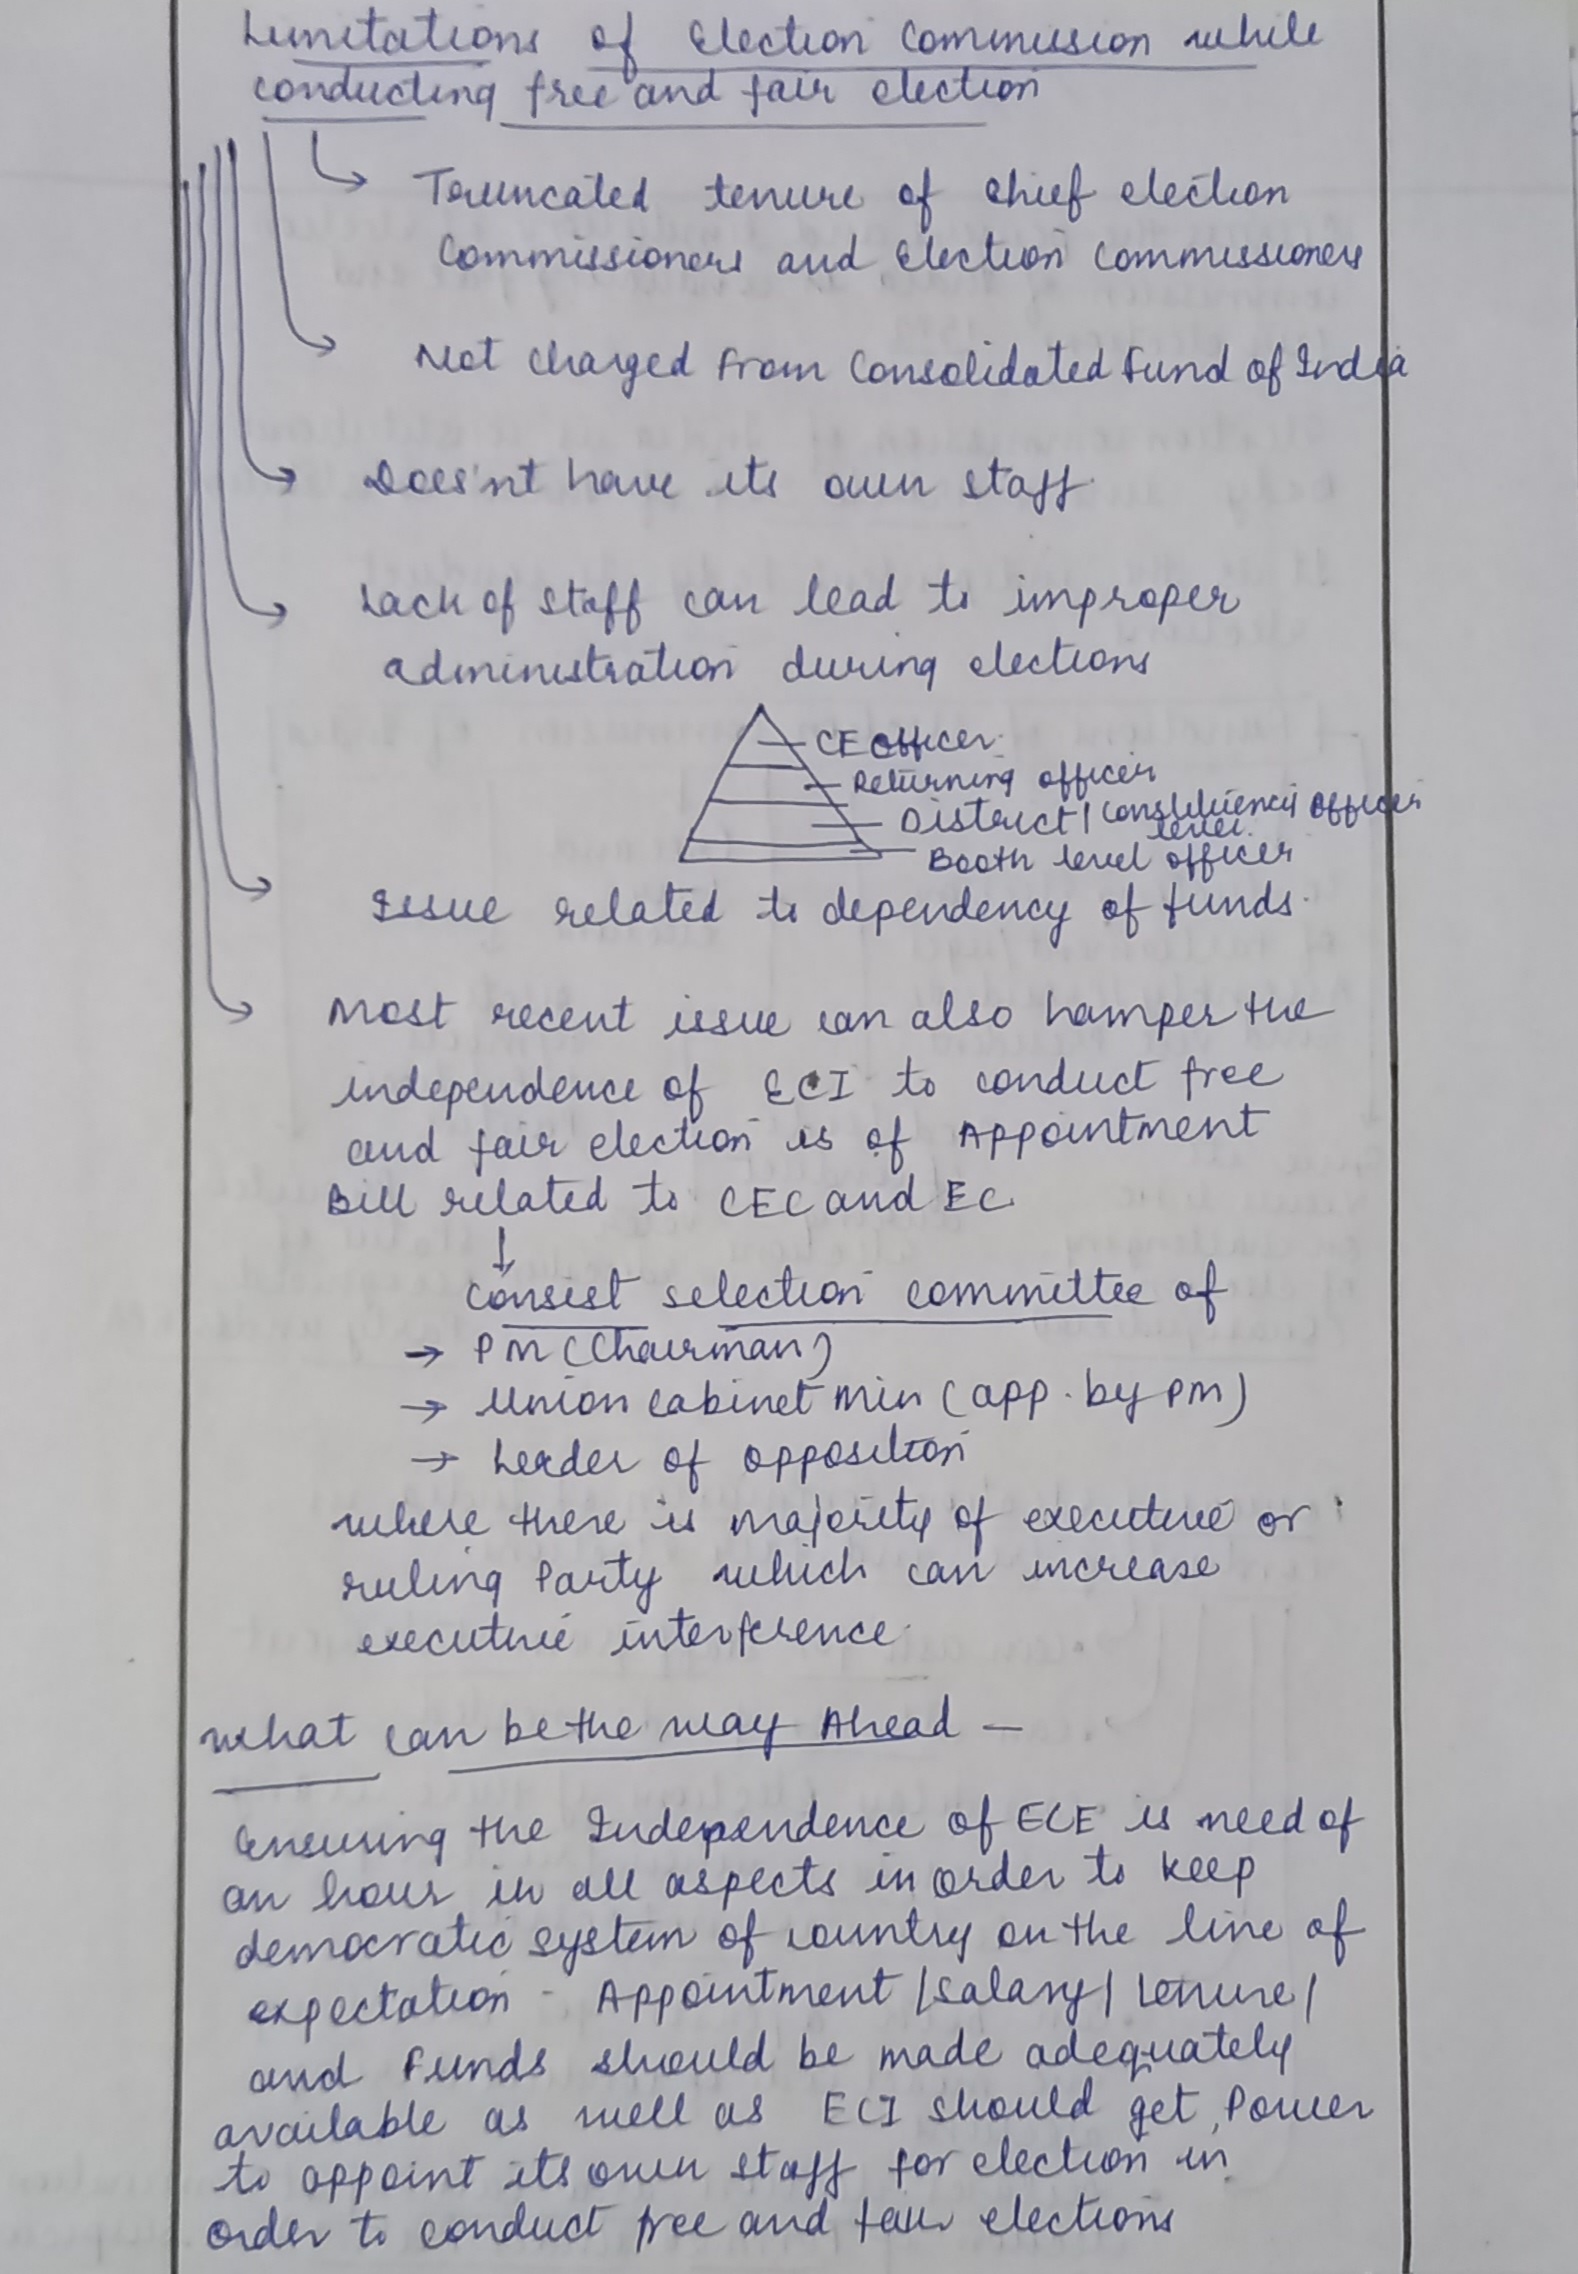 Limitations of Election Commission while
conducting free and fair election
Truncated tenure of chief election
Commissioners and Election Commissioners
Not charged from Consolidated Fund of India
Does'nt have its own staff.
Lack of staff can lead to improper
administration during elections
CE Officer
Returning officer
District / Constituency Officer
level
Booth level officer
Issue related to dependency of funds.
Most recent issue can also hamper the
independence of ECI to conduct free
and fair election is of Appointment
Bill related to CEC and EC
Consist selection committee of
→ PM (Chairman)
→ Union cabinet Min (app. by PM)
→ Leader of opposition
where there is majority of executive or
ruling Party which can increase
executive interference.
What can be the way Ahead —
Ensuring the Independence of ECE is need of
an hour in all aspects in order to keep
democratic system of country on the line of
expectation - Appointment / Salary / tenure /
and Funds should be made adequately
available as well as ECI should get Power
to appoint its own staff for election in
order to conduct free and fair elections